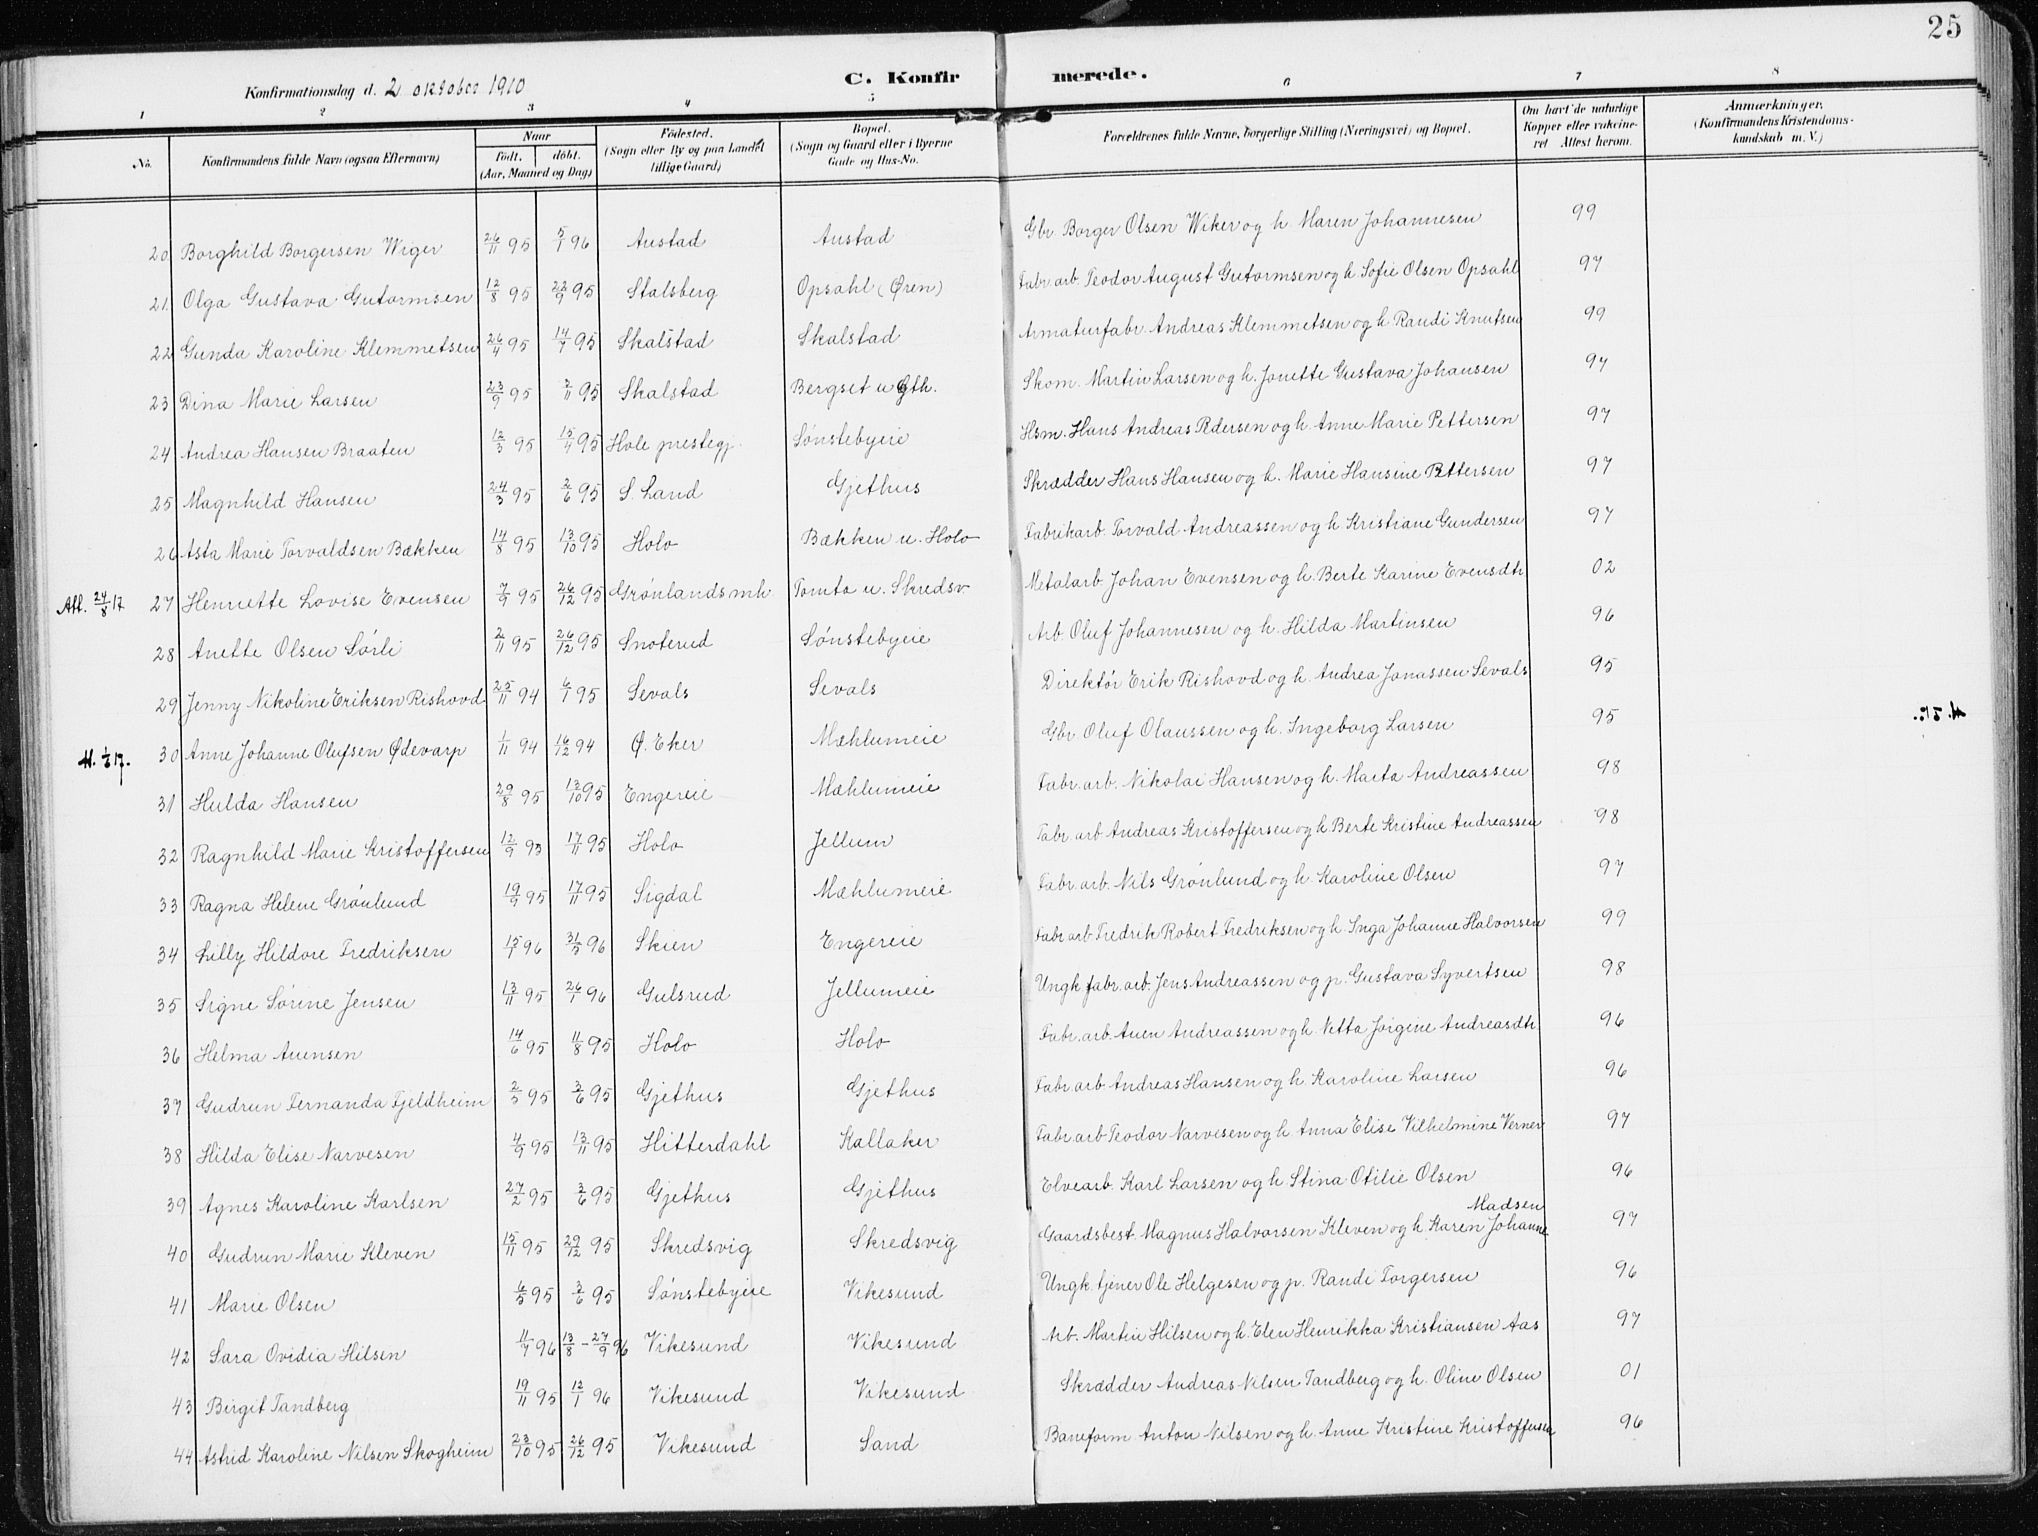 25
Konfirmationsdag d. 2 oktober 1910 C. Konfirmerede.
1 2 3 4 5 6 7 8
No. Konfirmandens fulde Navn (ogsaa Efternavn) Naar født. døbt. (Aar, Maaned og Dag) Fødested. (Sogn eller By og paa Landet tillige Gaard) Bopæl. (Sogn og Gaard eller i Byerne Gade og Hus-No. Forældrenes fulde Navne, borgerlige Stilling (Næringsvei) og Bopæl. Om havt de naturlige Kopper eller vakcineret Attest herom. Anmærkninger. (Konfirmandens Kristendomskundskab m. V.)
20 Borghild Borgersen Wiger 26/11 95 5/1 96 Austad Austad Gbr. Borger Olsen Wiker og h. Maren Johannesen 99
21 Olga Gustava Gutormsen 12/8 95 22/9 95 Stalsberg Opsahl (Øren) Fabr. arb. Teodor August Gutormsen og h. Sofie Olsen Opsahl 97
22 Gunda Karoline Klemmetsen 26/4 95 14/7 95 Skalstad Skalstad Armaturfabr. Andreas Klemmetsen og h. Randi Knutsen 99
23 Dina Marie Larsen 23/9 95 3/11 95 Skalstad Bergset u Gth. Skom. Martin Larsen og h. Jonette Gustava Johansen 97
24 Andrea Hansen Braaten 12/3 95 15/4 95 Hole prestegj. Sønstebyeie Hsm. Hans Andreas Pedersen og h. Anne Marie Pettersen 97
25 Magnhild Hansen 24/3 95 2/6 95 S. Land Gjethus Skrædder Hans Hansen og h. Marie Hansine Pettersen 97
26 Asta Marie Torvaldsen Bækken 14/8 95 13/10 95 Holo Bækken u. Holo Fabrikarb. Torvald Andreassen og h Kristiane Gundersen 97
Afl. 24/8 17 27 Henriette Lovise Evensen 7/9 95 26/12 95 Grønlands mh Tomta u. Skredsv. Metalarb. Johan Evensen og h. Berte Karine Evensdtr 02
28 Anette Olsen Sørli 2/11 95 26/12 95 Snoterud Sønstebyeie Arb. Oluf Johannesen og h. Hilda Martinsen 96
29 Jenny Nikoline Eriksen Rishovd 25/11 94 6/1 95 Sevals Sevals Direktør Erik Rishovd og h. Andrea Jonassen Sevals 95
30 Anne Johanne Olufsen Ødevarp 1/11 94 16/12 94 Ø. Eker Mæhlumeie Gbr. Oluf Olaussen og h. Ingeborg Larsen 95
31 Hulda Hansen 29/8 95 13/10 95 Engereie Mæhlumeie Fabr. arb. Nikolai Hansen og h. Marta Andreassen 98
32 Ragnhild Marie Kristoffersen 12/9 93 17/11 95 Holo Jellum Fabr. arb. Andreas Kristoffersen og h. Berte Kristine Andreassen 98
33 Ragna Helene Grønlund 19/9 95 17/11 95 Sigdal Mæhlumeie Fabr. arb. Nils Grønlund og h. Karoline Olsen 97
34 Lilly Hildore Fredriksen 15/1 96 31/5 96 Skien Engereie Fabr. arb. Fredrik Robert Fredriksen og h. Inga Johanne Halvorsen 99
35 Signe Sørine Jensen 13/11 95 26/1 96 Gulsrud Jellumeie Ungk. fabr. arb. Jens Andreassen og p. Gustava Syvertsen 98
36 Helma Auensen 14/6 95 11/8 95 Holo Holo Fabr. arb. Auen Andreassen og h. Netta Jørgine Andreasdtr. 96
37 Gudrun Fernanda Fjeldheim 2/5 95 3/6 95 Gjethus Gjethus Fabr. arb. Andreas Hansen og h. Karoline Larsen 96
38 Hilda Elise Narvesen 4/9 95 13/11 95 Hitterdahl Kallaker Fabr. arb. Teodor Narvesen og h Anna Elise Vilhelmine Verner 97
39 Agnes Karoline Karlsen 27/2 95 3/6 95 Gjethus Gjethus Elvearb. Karl Larsen og h Stina Otilie Olsen 96
40 Gudrun Marie Kleven 15/11 95 29/12 95 Skredsvig Skredsvig Gaardsbest. Magnus Halvorsen Kleven og h. Karen Johanne Madsen 97
41 Marie Olsen 6/5 95 3/6 95 Sønstebyeie Vikesund Ungk. tjener Ole Helgesen og p. Randi Torgersen 96
42 Sara Ovidia Hilsen 11/7 96 13/8 - 27/9 96 Vikesund Vikesund Arb. Martin Hilsen og h. Elen Henrikka Kristiansen Aas 97
43 Birgit Tandberg 19/11 95 12/1 96 Vikesund Vikesund Skrædder Andreas Nilsen Tandberg og h. Oline Olsen 01
44 Astrid Karoline Nilsen Skogheim 23/10 95 26/12 95 Vikesund Sand Baneform. Anton Nilsen og h. Anne Kristine Kristoffersen 96